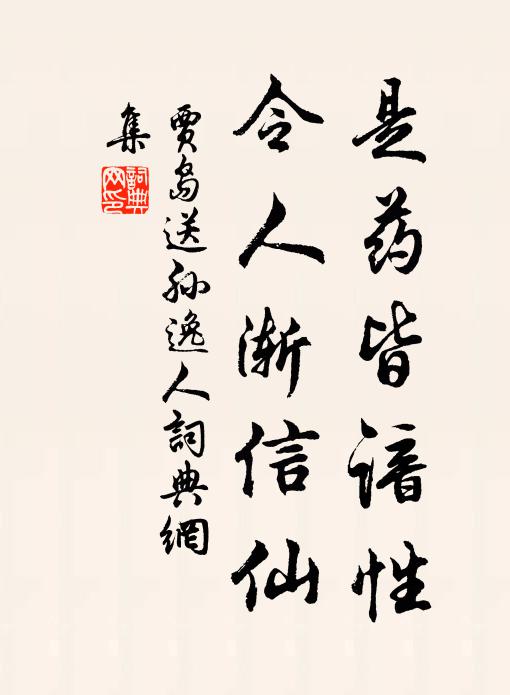 是药皆谙性
令人渐信仙
贾岛送孙逸人詞典網
集
詞典网印